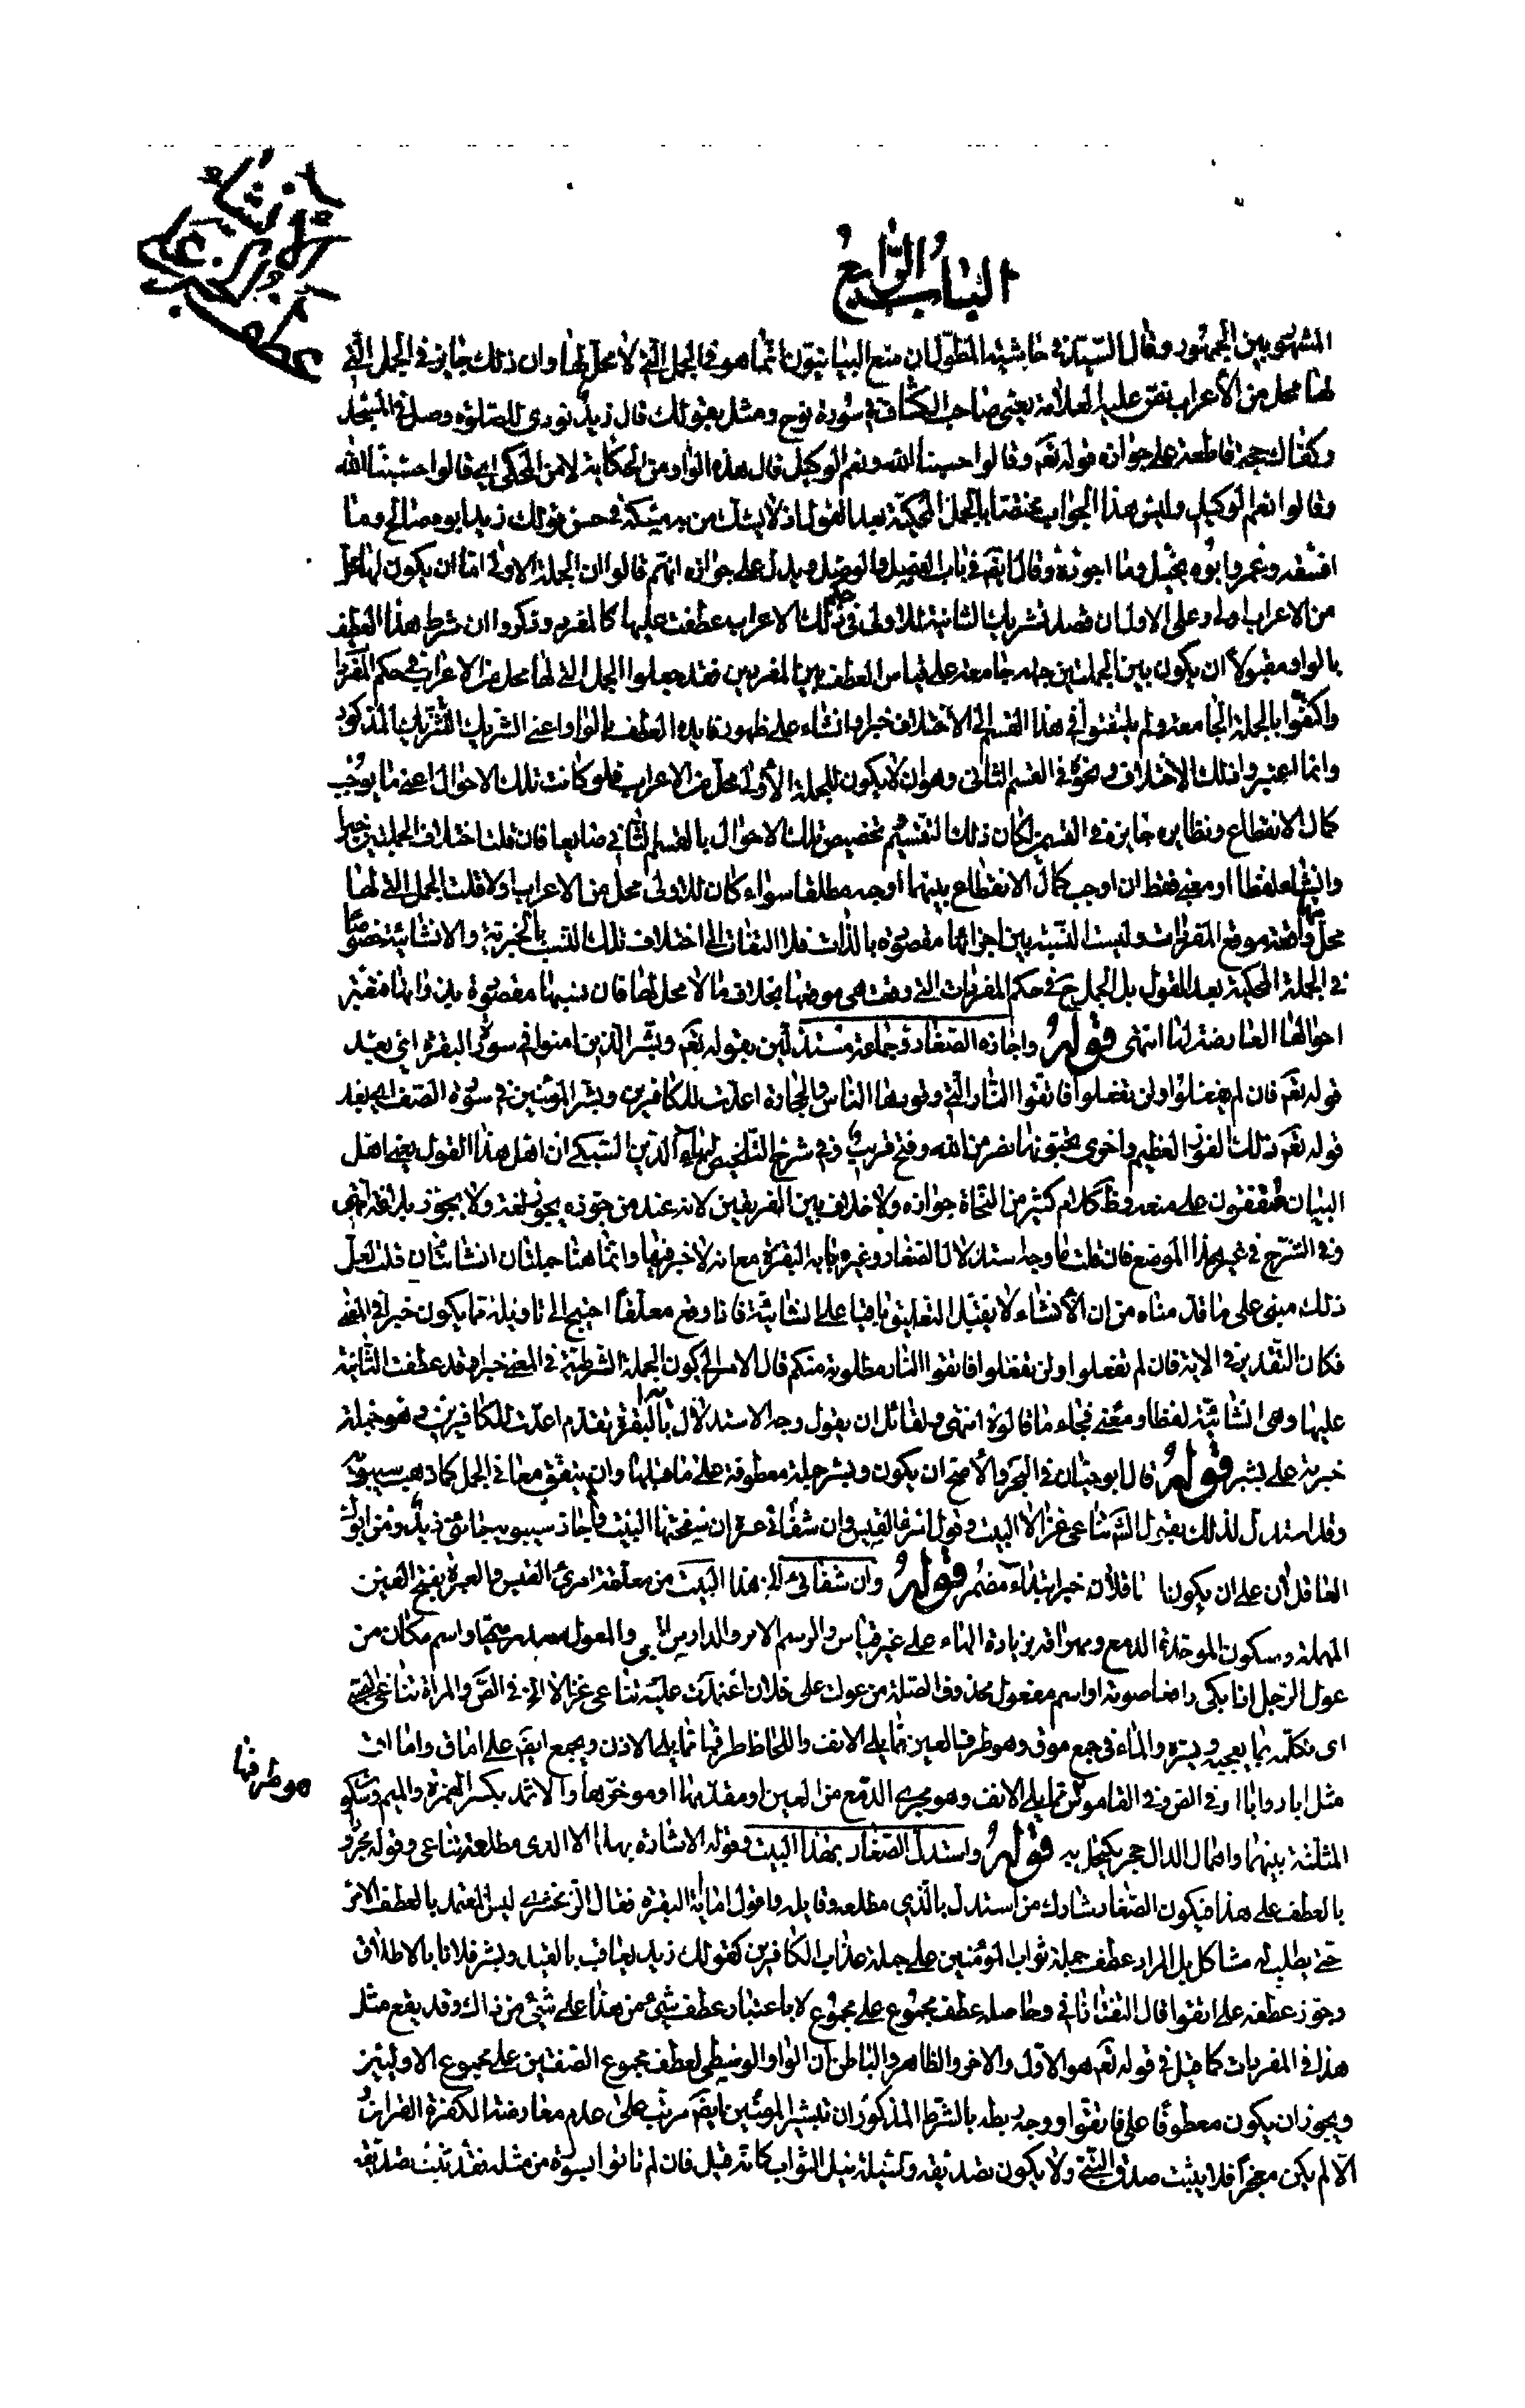 الباب الرابع
المشهور بين الجمهور وقال السيد في حاشيته المطول ان منع البيانيون انما هو في الجمل التي لا محل لها وان ذلك جايز في الجمل التي
لها محل من الاعراب نص عليه العلامة يعني صاحب الكشاف في سورة نوح ومثل بقولك قال زيد نودي للصلوة وصل في المسجد
وكفاك حجة قاطعة على جوازه قوله تعم وقالوا حسبنا الله ونعم الوكيل قال هذه الواو من الحكاية لا من المحكى اي قالوا حسبنا الله
وقالوا نعم الوكيل وليس هذا الجواب مختصا بالجمل المحكية بعد القول اذ لا يشك من به مسكة في حسن قولك زيد ابوه صالح وما
افسقه وعمرو ابوه بخيل وما اجوده وقال ايضم في باب الفصل والوصل ويدل على جوازه انهم قالوا ان الجملة الاولى اما ان يكون لها محل
من الاعراب اولا وعلى الاول ان قصد تشريك الثانية للاولى في حكم ذلك الاعراب عطفت عليها كالمفرد وذكروا ان شرط هذا العطف
بالواو مقبولا ان يكون بين الجملتين جهة جامعة على قياس العطف بين المفردين فقد جعلوا الجمل التي لها محل من الاعراب في حكم المفردات
واكتفوا بالجهة الجامعة ولم يلتفتوا في هذا القسم الى الاختلاف خبرا وانشاء على ظهور فايدة العطف بالواو اعني التشريك المذكور
وانما اعتبروا ذلك الاختلاف ونحوه في القسم الثاني وهو ان لا يكون للجملة الاولى محل من الاعراب فلو كانت تلك الاحوال اعني ما يوجب
كمال الانقطاع ونظايره جايزة في القسمين لكان ذلك التقسيم تخصيص تلك الاحوال بالقسم الثاني ضايعا فان قلت اختلاف الجملتين خبرا
وانشاء لفظا او معنى فقط ان اوجب كمال الانقطاع بينهما اوجبه مطلقا سواء كان للاولى محل من الاعراب اولا قلت الجمل التي لها
محل واقعة موقع المفردات وليست النسبة بين اجزائها مقصودة بالذات فلا التفات الى اختلاف تلك النسب بالخبرية والانشائية خصوصا
في الجملة المحكية بعد القول بل الجمل ح في حكم المفردات التي وقعت هي موقعها بخلاف ما لا محل لها فان نسبتها مقصودة بذواتها فتعتبر
احوالها العارضة لها انتهى قوله واجازه الصفار وجماعة مستدلين بقوله تعم وبشر الذين امنوا في سورة البقرة اي بعد
قوله تعم فان لم تفعلوا ولن تفعلوا فاتقوا النار التي وقودها الناس والحجارة اعدت للكافرين وبشر المؤمنين في سورة الصف اي بعد
قوله تعم ذلك الفوز العظيم واخرى تحبونها نصر من الله وفتح قريب وفي شرح التلخيص لبهاء الدين السبكي ان اهل هذا القول يعني اهل
البيان متفقون على منعه وظ كلام كثير من النحاة جوازه ولا خلاف بين الفريقين لانه عند من جوزه يجوز لغة ولا يجوز بلاغة انتهى
وفي الشرح في غير هذا الموضع فان قلت ما وجه استدلال الصفار وغيره باية البقرة مع انه لا خبر فيها وانما هنا جملتان انشائيتان قلت لعل
ذلك مبني على ما قدمناه من ان الانشاء لا يقبل التعليق باقيا على انشائية فاذا وقع معلقا احتيج الى تاويله بما يكون خبرا في المعنى
فكان التقدير في الاية فان لم تفعلوا ولن تفعلوا فاتقوا النار مطلوبة منكم قال الامر الى كون الجملة الشرطية في المعنى خبرا وقد عطفت الثانية
عليها وهي انشائية لفظا ومعنى فجاء ما قالوه انتهى ولقائل ان يقول وجه الاستدلال باية البقرة تقدم اعدت للكافرين وهو جملة
خبرية على بشر قوله قال ابو حيان في البحر والاصح ان يكون وبشر جملة معطوفة على ما قبلها وان لم يتفق معا في الجمل كما ذهب سيبويه
وقد استدل لذلك بقول الشاعر تناغي غزالا البيت وقول امرء القيس وان شفائي عبرة ان سفحتها البيت واجاز سيبويه جائني زيد ومن ابوك
العاقلان على ان يكون العاقلان خبر ابتداء مضمر قوله وان شفائي الخ هذا البيت من معلقة امرئ القيس والعبرة بفتح العين
المهملة وسكون الموحدة الدمع ومهراقة بزيادة الهاء على غير قياس والرسم الاثر والدارس والمعول مصدر ميمي او اسم مكان من
عول الرجل اذا بكى رافعا صوته او اسم مفعول محذوف الصلة من عولت على فلان اعتمدت عليه تناغي غزالا الخ في الص والمراة تناغي الصبي
اي تكلمه بما يعجبه ويسره والماءقي جمع موق وهو طرف العين مما يلي الانف واللحاظ طرفها مما يلي الاذن ويجمع ايضم على اماق واماق
هو طرفها
مثل ابار وابار وفي الص وفي القاموس مما يلي الانف وهو مجرى الدمع من العين او مقدمها او موخرها والاثمد بكسر الهمزة والميم وسكون
المثلثة بينهما واهمال الدال حجر يكتحل به قوله واستدل الصفار بهذا البيت وقوله الاشارة بهذا الى الذي مطلعه تناغي وقوله مجرد
بالعطف على هذا فيكون الصفار شارك من استدل بالذي مطلعه وقايله واقول اما اية البقرة فقال الزمخشري ليس المعتمد بالعطف الامر
حتى يطلب له مشاكل بل المراد عطف جملة ثواب المؤمنين على جملة عذاب الكافرين كقولك زيد يعاقب بالقيد وبشر فلانا بالاطلاق
وجوز عطفه على اتقوا قال التفتازاني وحاصله عطف مجموع على مجموع لا باعتبار عطف شيء من هذا على شيء من ذاك وقد يقع مثل
هذا في المفردات كما قيل في قوله تعم هو الاول والاخر والظاهر والباطن ان الواو الوسطى لعطف مجموع الصفتين على مجموع الاوليين
ويجوز ان يكون معطوفا على فاتقوا ووجه ربطه بالشرط المذكور ان تبشير المؤمنين ايضم مرتب على عدم معارضة الكفرة القران
الا لم يكن معجزا فلا يثبت صدق النبي ولا يكون تصديقه وسيلة نيل الثواب كانه قيل فان لم تاتوا بسورة من مثله فقد ثبت صدقه